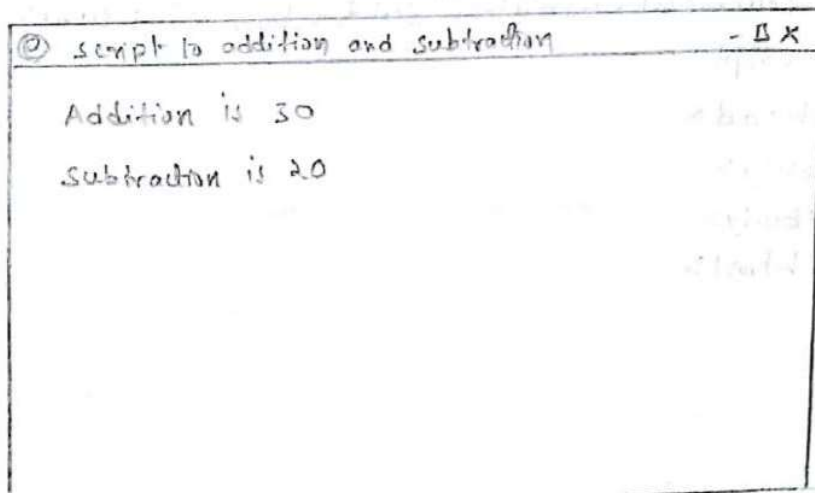 script to addition and subtraction - x
Addition is 30
Subtraction is 20